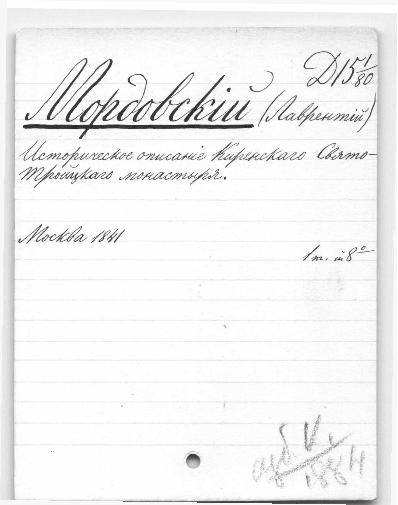 Д 15 1/80
Мордовскiй (Лаврентiй)
Историческое описанiе Киренскаго Свято-
Троицкаго монастыря.
Москва 1841
1 т. in 8°